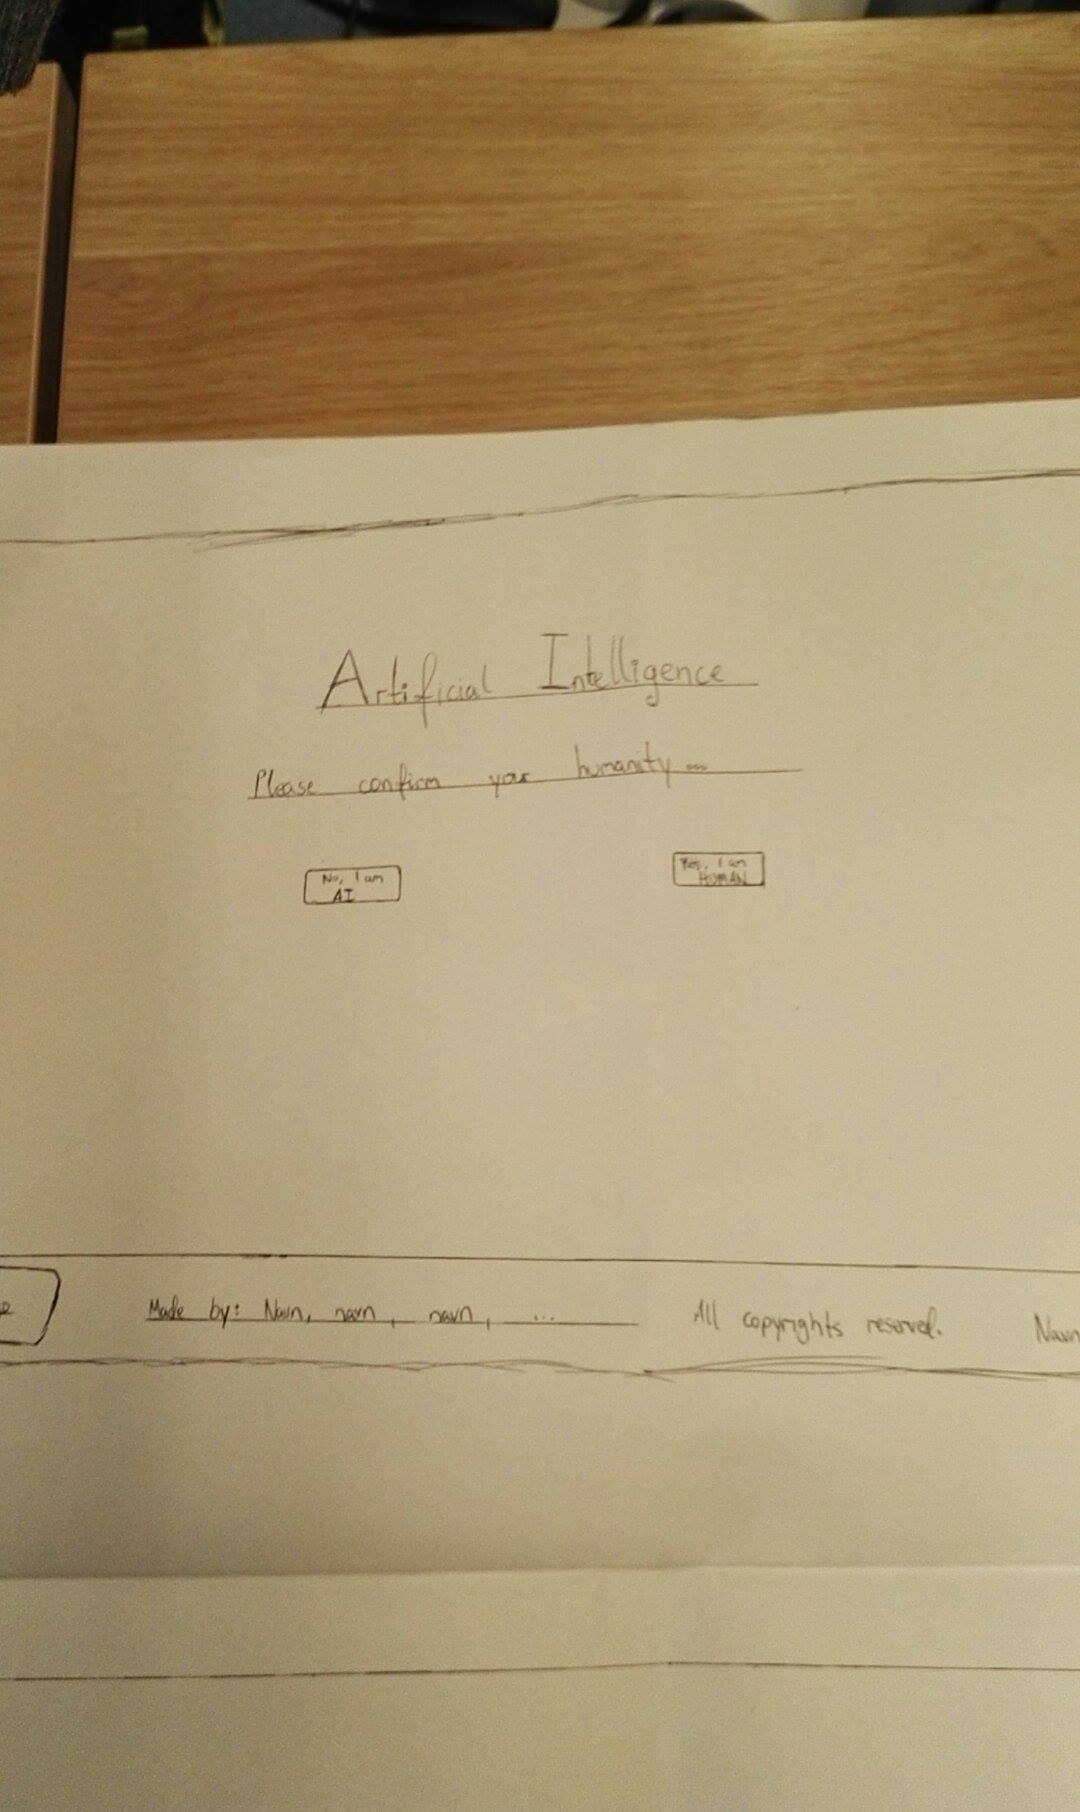 Artificial Intelligence
Please confirm your humanity...
No, I am
AI
Yes, I am
HUMAN
Made by: Navn, navn, navn, ...
All copyrights reserved.
Navn